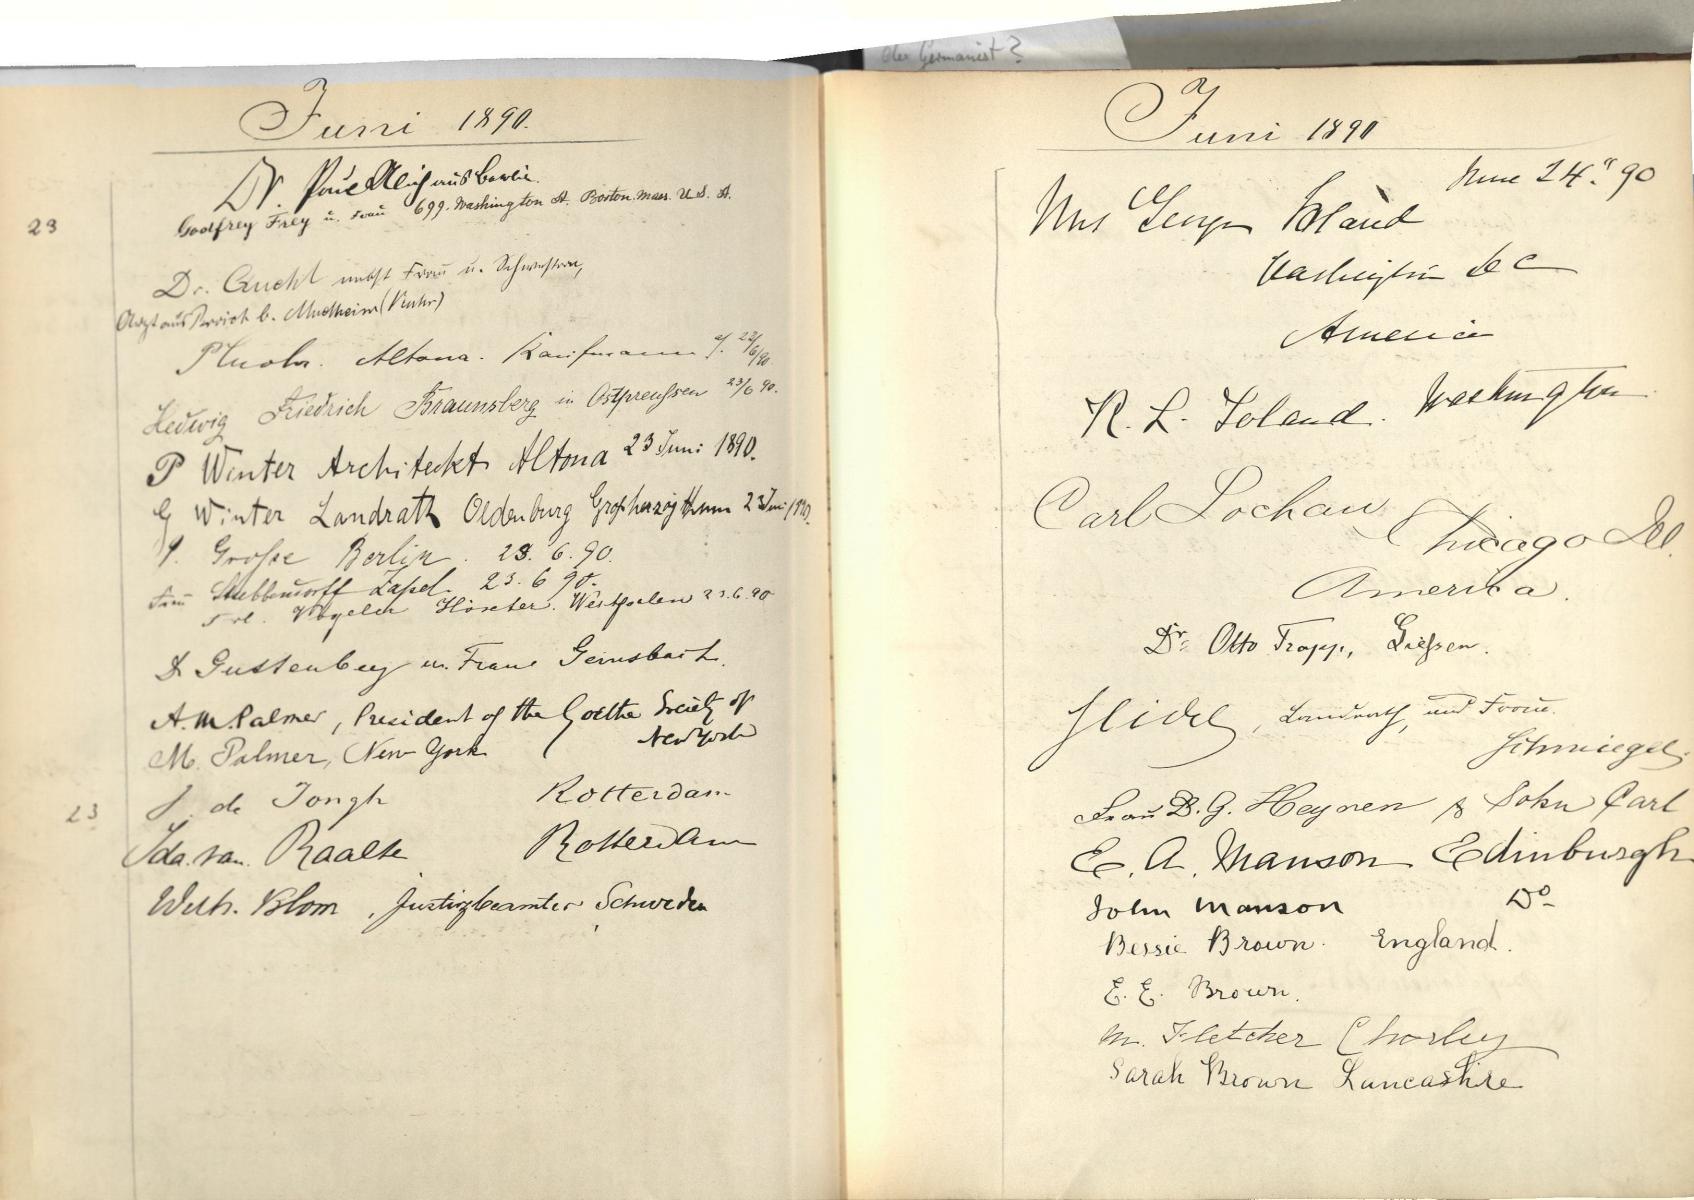 der Germanist?
Juni 1890.
Dr. Paul aus Berlin.
23
Godfrey Frey u. Frau 699. Washington St. Boston. Mass. U. S. A.
Dr. nebst Frau u.
Arzt aus b. Muelheim (Ruhr)
Altona. Kaufmann 23/6/90.
Hedwig Friedrich Braunsberg in Ostpreußen 23/6 90.
P Winter Architeckt Altona 23 Juni 1890.
G Winter Landrath Oldenburg Großherzogthum 23 Juni 1890.
Große Berlin. 23. 6. 90.
Frau Stubbendorff Zapel. 23. 6 90.
Frl. Vögeler Höxter. Westfalen 23.6.90
Guttenberg u. Frau Gernsbach.
A. M. Palmer, President of the Goethe Society of
New York
M. Palmer, New York
J. de Jongh Rotterdam
23
Ida. van. Raalte Rotterdam
Wilh. Blom, Justizbeamter Schweden
Juni 1890
June 24." 90
Mrs George
Washington D C
America
R. L. Toland. Washington
Carl Lochau Chicago Ill.
America.
Dr. Otto Tropp, Gießen.
Landrath, und Frau.
Schmiegel.
Frau B. G. Heynen & Sohn Carl
E. A. Manson Edinburgh
John Manson Do
Bessie Brown. England.
E. E. Brown.
M. Fletcher Chorley
Sarah Brown Lancashire